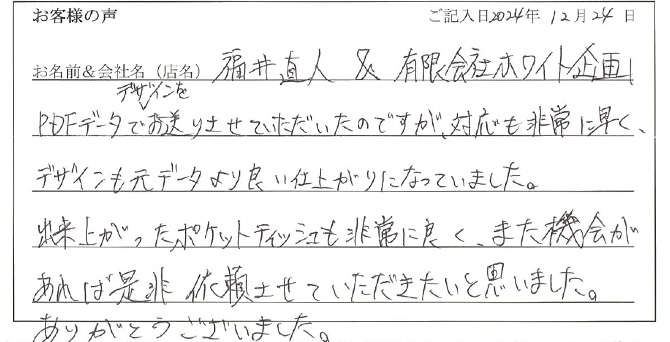 お客様の声 ご記入日2024年 12月24日
お名前&会社名（店名） 福井直人 & 有限会社ホワイト企画
デザインを
PDFデータでお送りさせていただいたのですが、対応も非常に早く、
デザインも元データより良い仕上がりになっていました。
出来上がったポケットティッシュも非常に良く、また機会が
あれば是非依頼させていただきたいと思いました。
ありがとうございました。